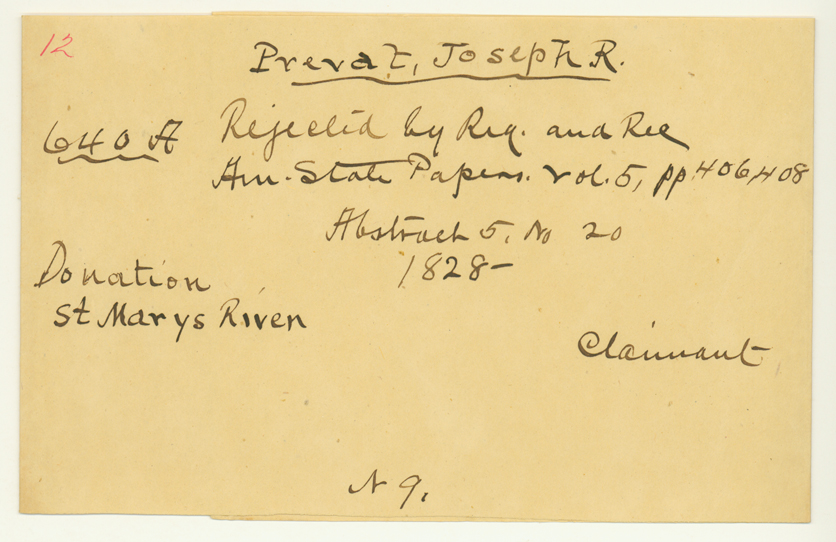 12
Prevat, Joseph R.
640 A Rejected by Reg. and Rec
Am. State Papers. vol. 5, pp 406, 408
Abstract 5, No 20
1828-
Donation
St Marys River
Claimant
N 9.